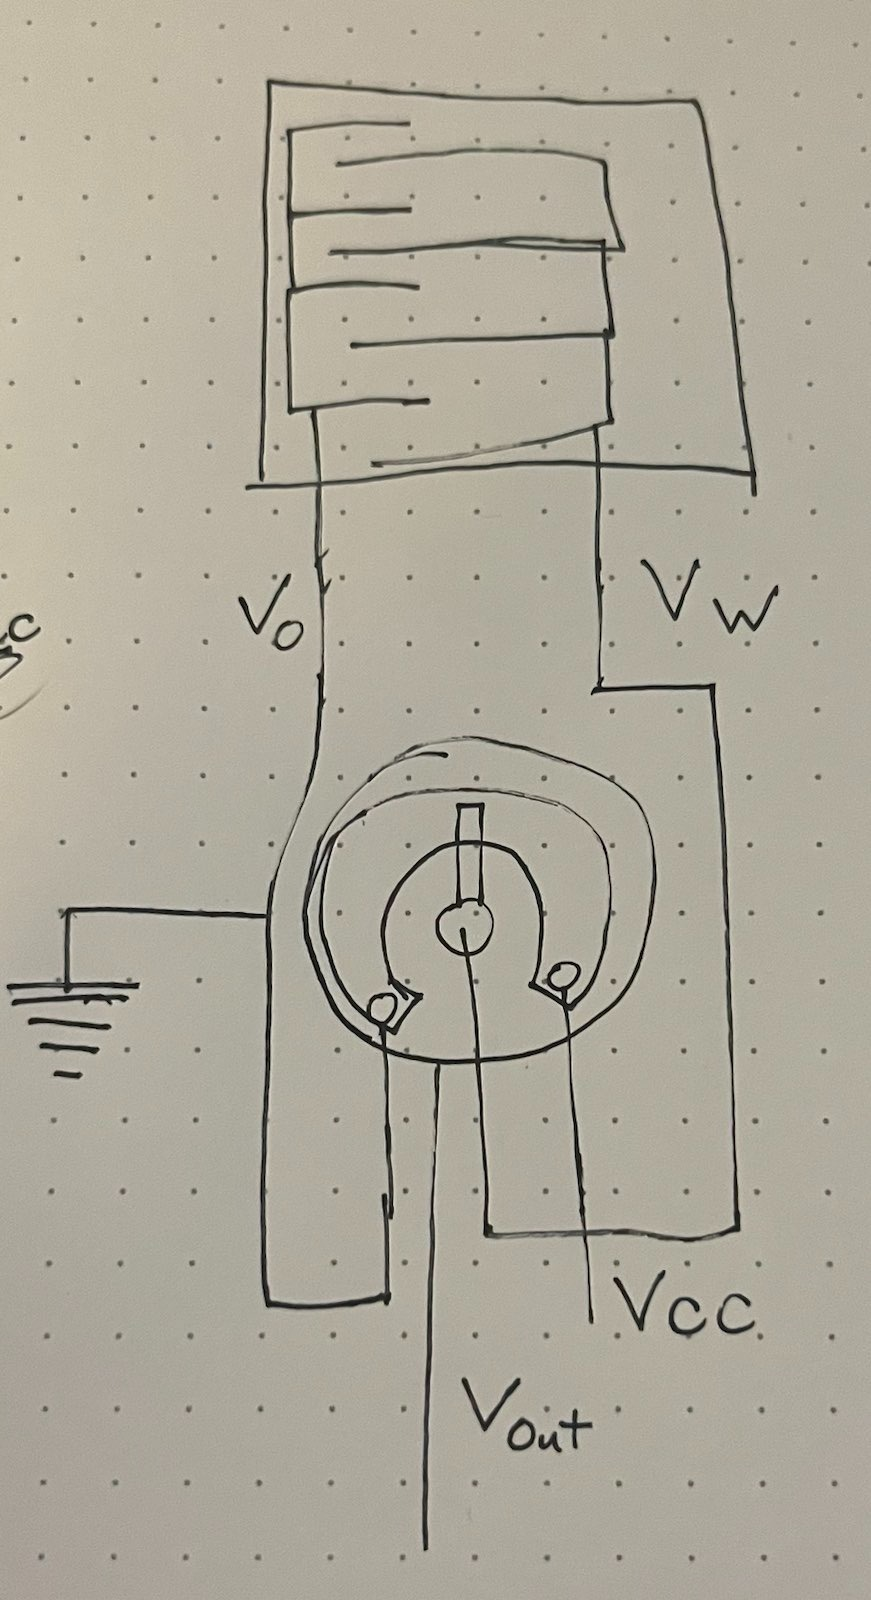 V₀ V w
Vcc
Vout